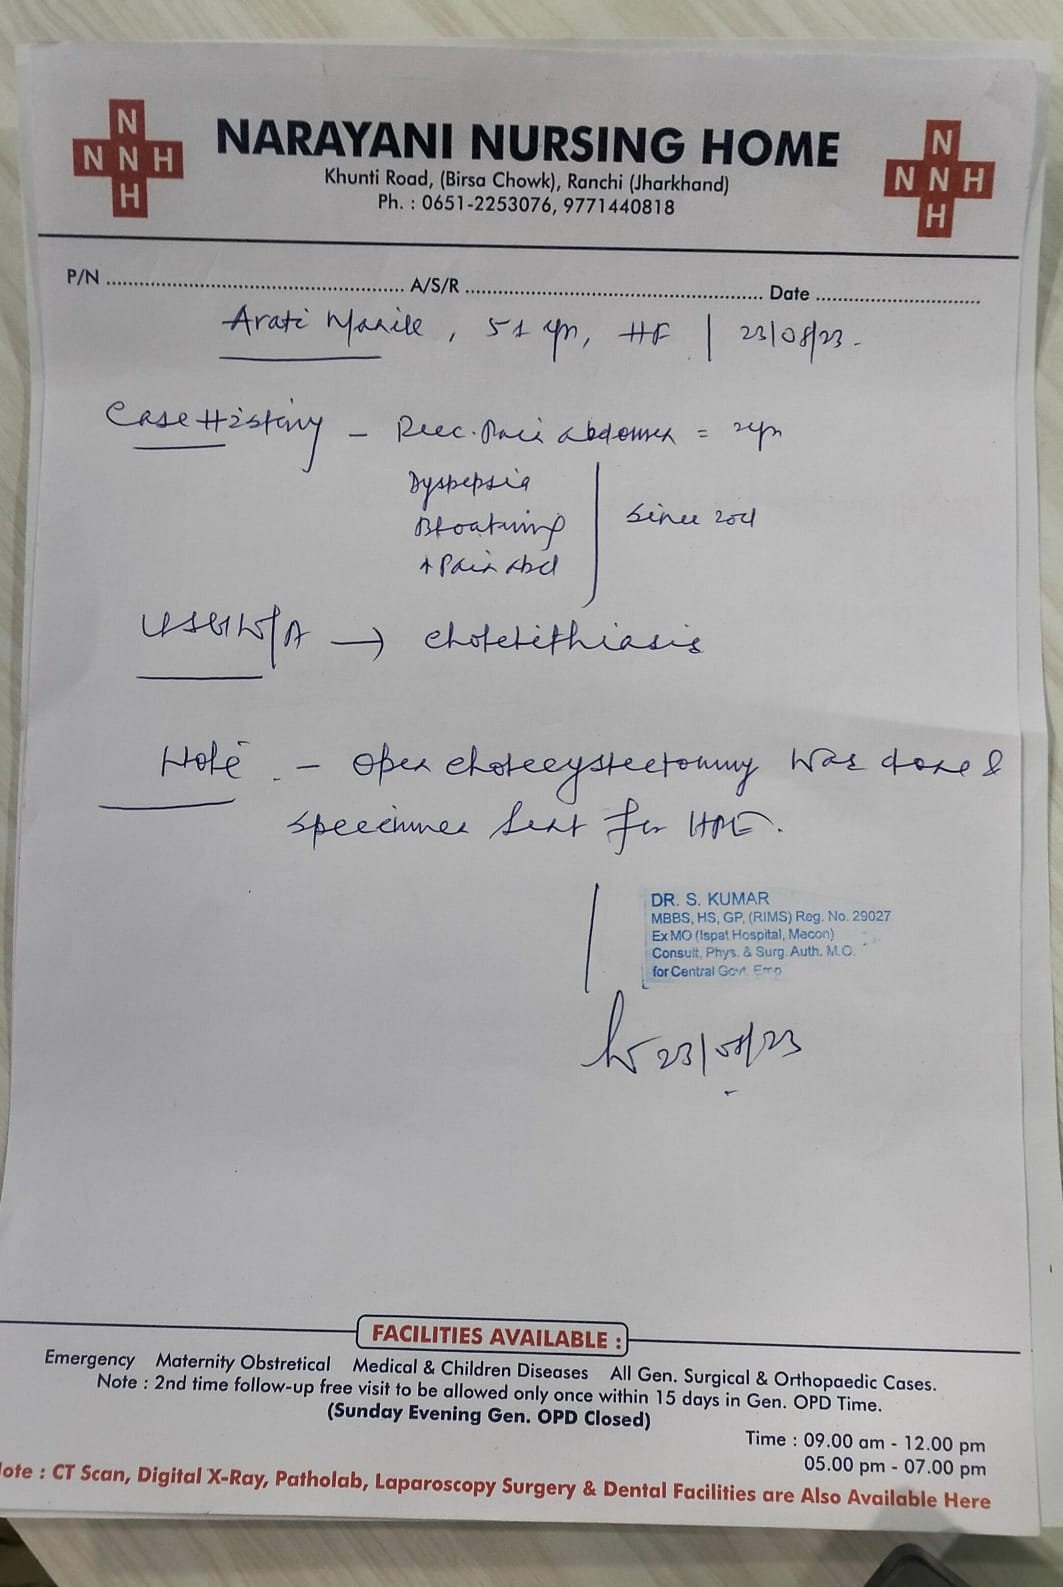 N
N N H
H
NARAYANI NURSING HOME
Khunti Road, (Birsa Chowk), Ranchi (Jharkhand)
Ph. : 0651-2253076, 9771440818
N
N N H
H
P/N ........ A/S/R ........ Date ........
Arati , 51 yrs, HF | 23/08/23.
Case History - Rec. Pain Abdomen = 2yrs
Dyspepsia
Bloatning
↑ Pain Abd
Since 2021
USG W/A → cholelithiasis
Note - Open cholecystectomy was done &
specimen sent for HPE.
DR. S. KUMAR
MBBS, HS, GP, (RIMS) Reg. No. 29027
Ex MO (Ispat Hospital, Mecon)
Consult, Phys. & Surg. Auth. M.O.
for Central Govt. Emp
23/08/23
FACILITIES AVAILABLE :
Emergency Maternity Obstretical Medical & Children Diseases All Gen. Surgical & Orthopaedic Cases.
Note : 2nd time follow-up free visit to be allowed only once within 15 days in Gen. OPD Time.
(Sunday Evening Gen. OPD Closed)
Time : 09.00 am - 12.00 pm
05.00 pm - 07.00 pm
Note : CT Scan, Digital X-Ray, Patholab, Laparoscopy Surgery & Dental Facilities are Also Available Here